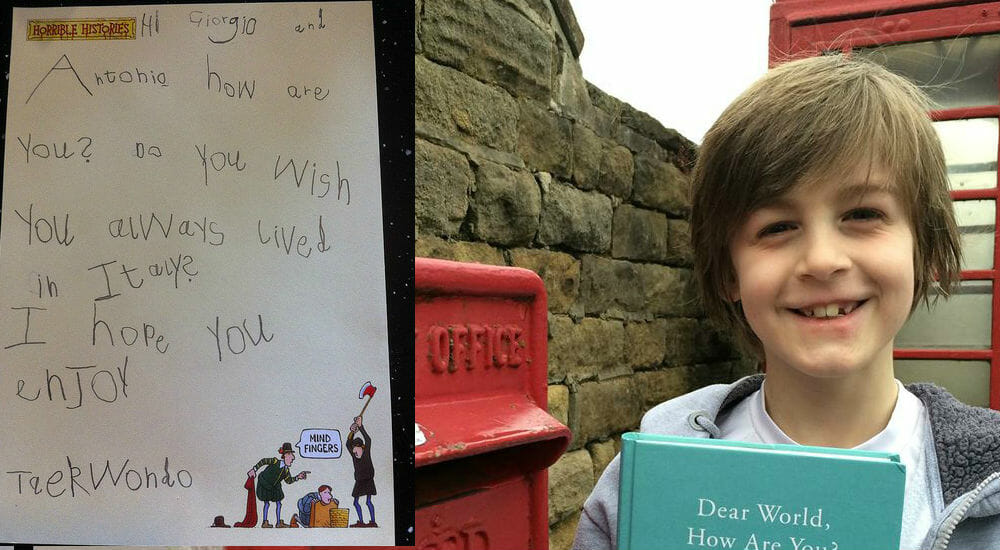 HORRIBLE HISTORIES
Hi Giorgio and
Antonia how are
you? Do you wish
you always lived
in Italy?
I hope you
enjoy
TaekWondo
MIND
FINGERS
OFFICE
Dear World,
How Are You?